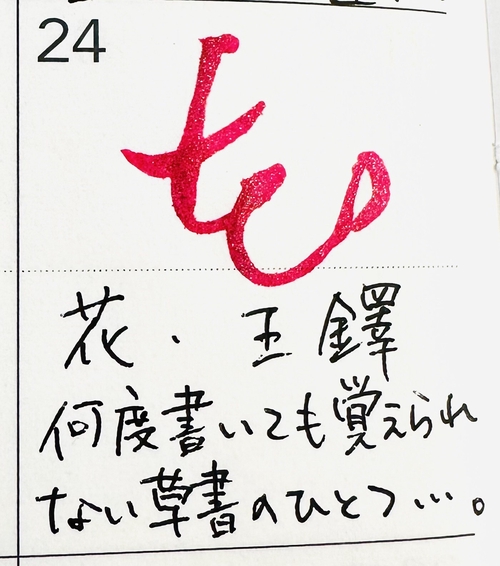 24
花
花・王鐸
何度書いても覚えられ
ない草書のひとつ…。